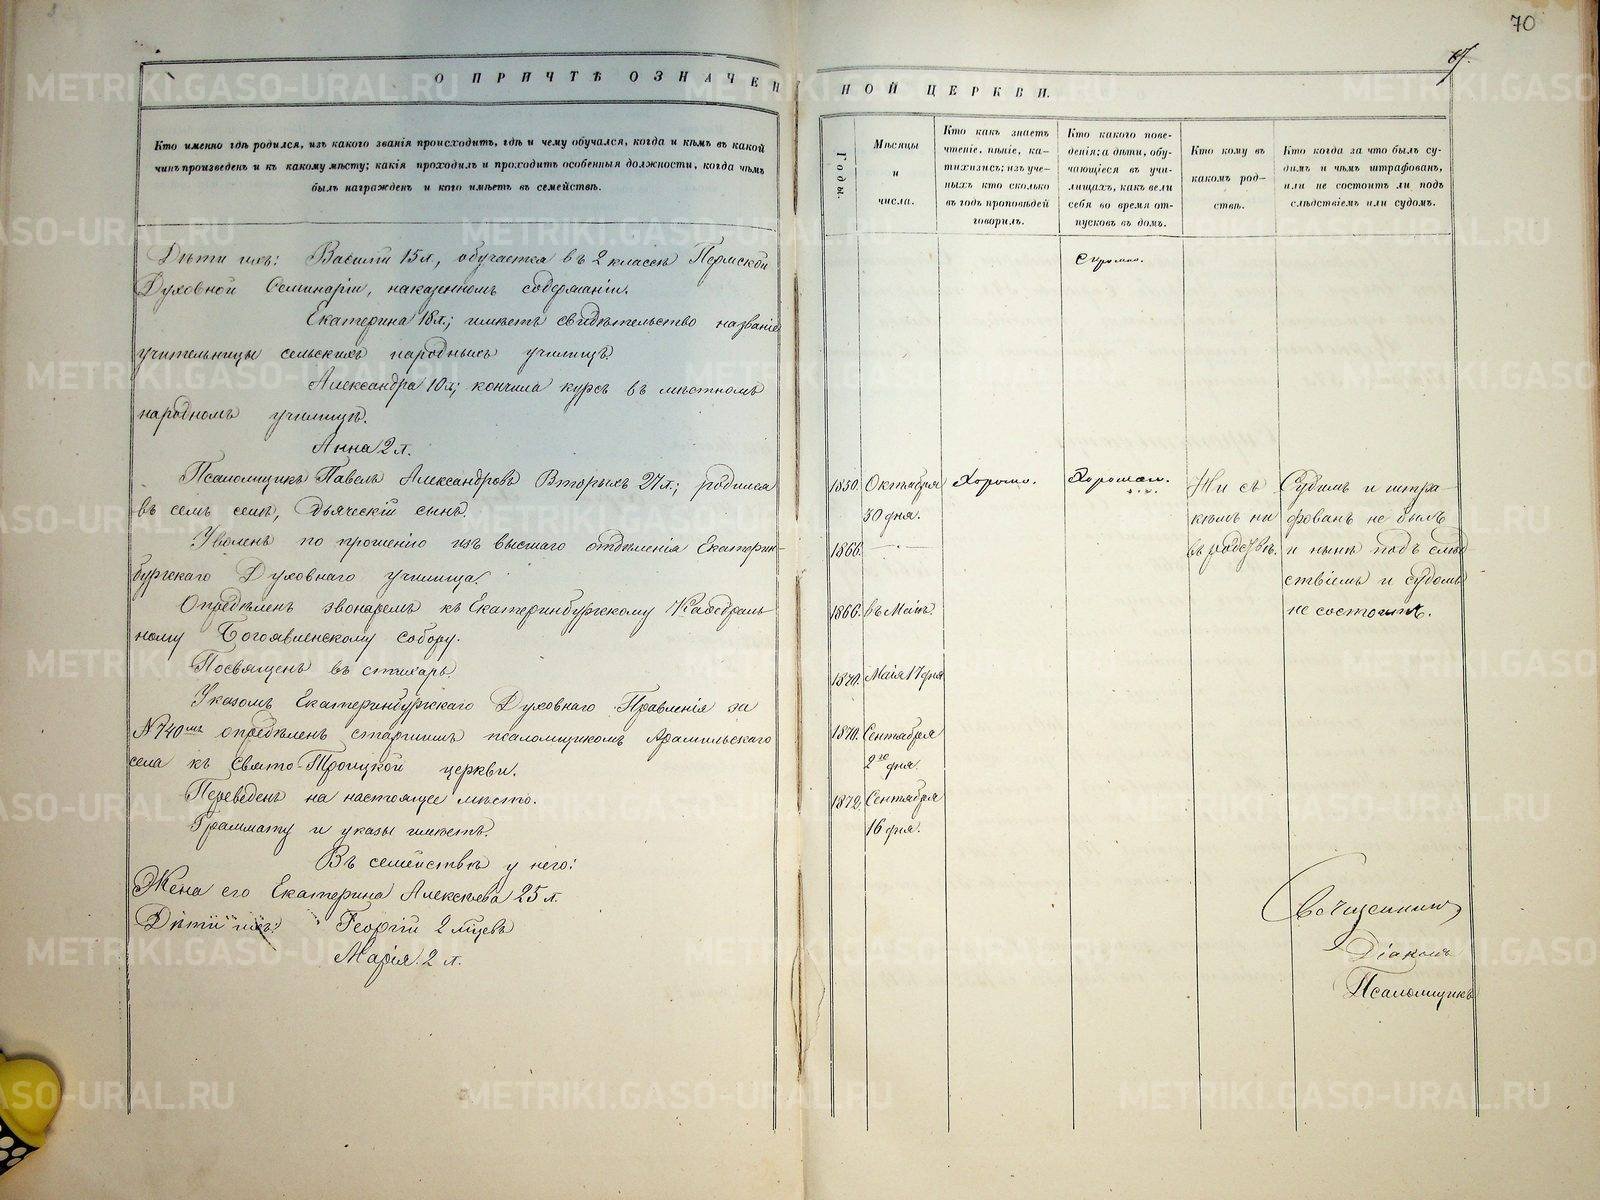 70
67.
О ПРИЧТѢ ОЗНАЧЕННОЙ ЦЕРКВИ.
Кто именно гдѣ родился, изъ какого званія происходитъ, гдѣ и чему обучался, когда и кѣмъ въ какой
чинъ произведенъ и къ какому мѣсту; какія проходилъ и проходитъ особенныя должности, когда чѣмъ
былъ награжденъ и кого имѣетъ въ семействѣ.
Годы.
Мѣсяцы
и
числа.
Кто какъ знаетъ
чтеніе, пѣніе, ка-
тихизисъ; изъ уче-
ныхъ кто сколько
въ годъ проповѣдей
говорилъ.
Кто какого пове-
денія; а дѣти, обу-
чающіеся въ учи-
лищахъ, какъ вели
себя во время от-
пусковъ въ домъ.
Кто кому въ
какомъ род-
ствѣ.
Кто когда за что былъ су-
димъ и чѣмъ штрафованъ,
или не состоитъ ли подъ
слѣдствіемъ или судомъ.
Дѣти ихъ: Василій 15 л., обучается въ 2 классѣ Пермской
Духовной Семинаріи, на казенномъ содержаніи.
Екатерина 18 л.; имѣетъ свидѣтельство названіе
учительницы сельскихъ народныхъ училищъ.
Александра 10 л; кончила курсъ въ мѣстномъ
народномъ училищѣ.
Анна 2 л.
Псаломщикъ Павелъ Александровъ Вторыхъ 27 л.; родился
въ семъ селѣ, дьяческій сынъ.
Уволенъ по прошенію изъ высшаго отдѣленія Екатерин-
бургскаго Духовнаго училища.
Опредѣленъ звонаремъ къ Екатеринбургскому Каѳедраль-
ному Богоявленскому собору.
Посвященъ въ стихарь.
Указомъ Екатеринбургскаго Духовнаго Правленія за
№ 740мъ опредѣленъ старшимъ псаломщикомъ Арамильскаго
села къ Свято-Троицкой церкви.
Переведенъ на настоящее мѣсто.
Граммату и указы имѣетъ.
Въ семействѣ у него:
Жена его Екатерина Алексѣева 25 л.
Дѣти ихъ: Георгій 2 мѣцевъ
Марія. 2 л.
Скромно.
1850 Октября
30 дня.
1866.
1866. въ Маѣ.
1870. Маія 17 дня
1870. Сентября
2го дня.
1872. Сентября
16 дня.
Хорошо.
Хорошаго.
Ни съ
кѣмъ ни
въ родствѣ.
Судимъ и штра-
фованъ не былъ
и нынѣ подъ слѣд-
ствіемъ и судомъ
не состоитъ.
Священникъ
Діаконъ
Псаломщикъ
METRIKI.GASO-URAL.RU